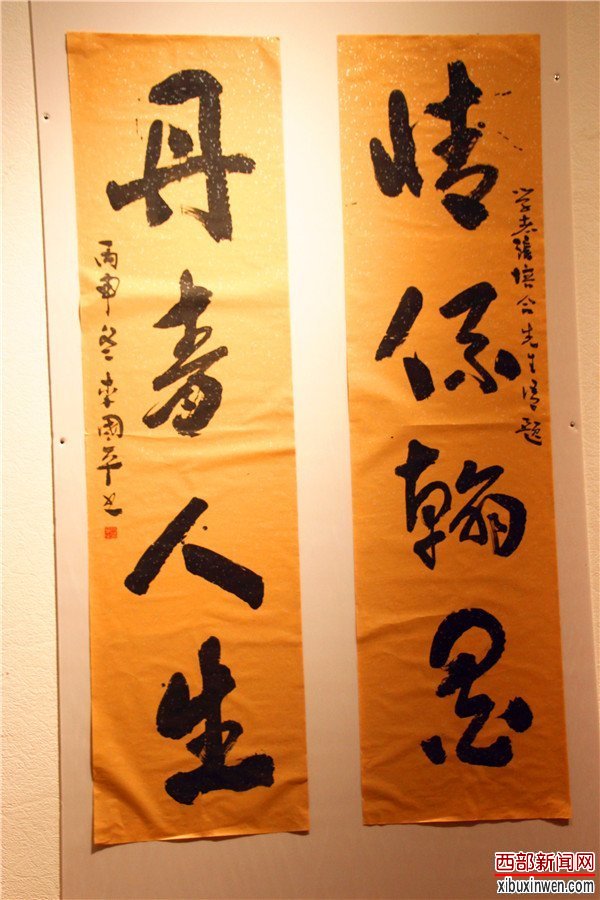 情係翰墨
张培合先生清题
丹青人生
丙申冬李國平书
西部新闻网
xibuxinwen.com